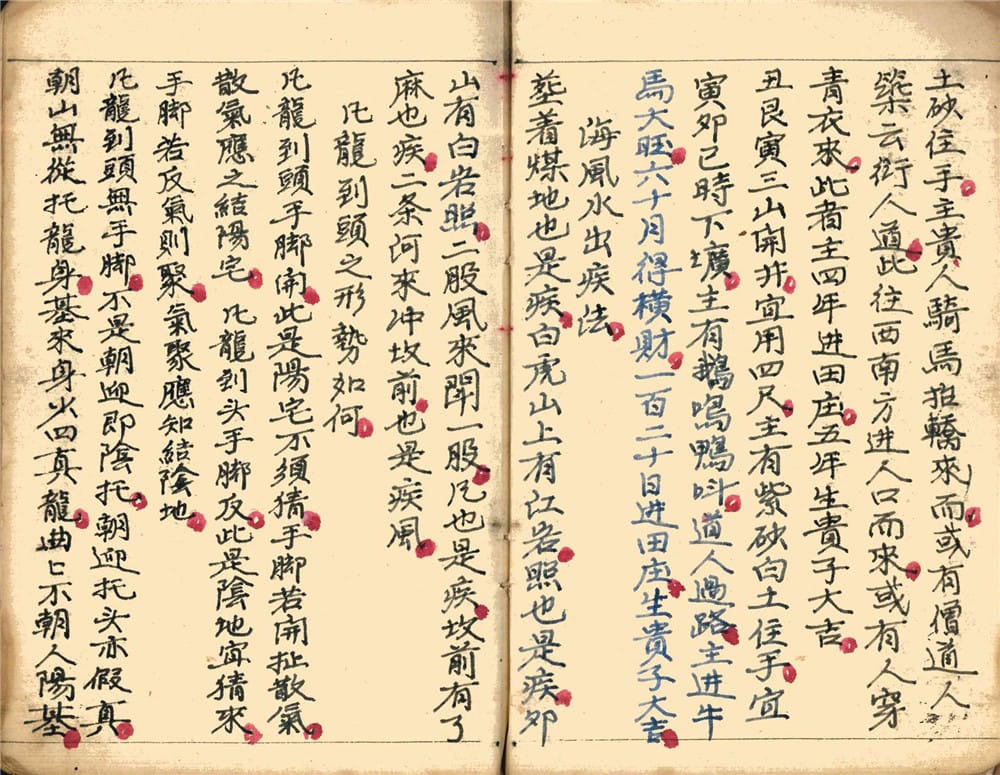 土砂住手主貴人騎馬抬轎來而或有僧道人
築云衍人道此往西南方进人口而來或有人穿
青衣來此者主四年进田庄五年生貴子大吉
丑艮寅三山開井宜用四尺主有紫砂白土住手宜
寅夘巳時下壙主有鵝鳴鴨呌道人過路主进牛
馬大旺六十月得橫財一百二十日进田庄生貴子大吉
海風水出疾法
塟着煤地也是疾白虎山上有江岩照也是疾夘
山有白岩照二股風來開一股凢也是疾坟前有了
麻也疾二条河來冲坟前也是疾風
凢龍到頭之形勢如何
凢龍到頭手脚開此是陽宅不須猜手脚若開扯散氣
散氣應之結陽宅 凢龍到头手脚反此是陰地宜猜來
手脚若反氣則聚氣聚應知結陰地
凢龍到頭無手脚不是朝迎即陰托朝迎托头亦假真
朝山無從托龍身基來身火四真龍曲匕不朝人陽基